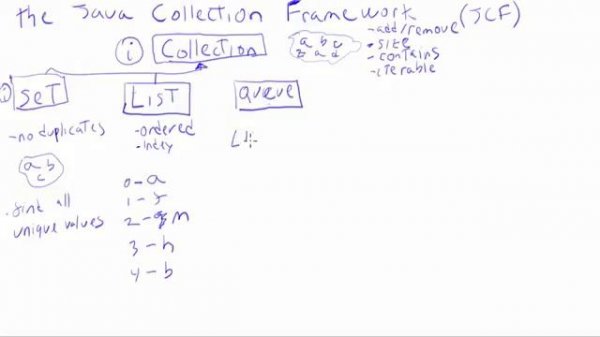 the Java Collection Framework (JCF)
i Collection
a b c
b a d
-add/remove
- size
- contains
- iterable
Set
List
Queue
-no duplicates
a b
c
- find all
unique values
-ordered
- index
0-a
1-
2- m
3-h
4-b